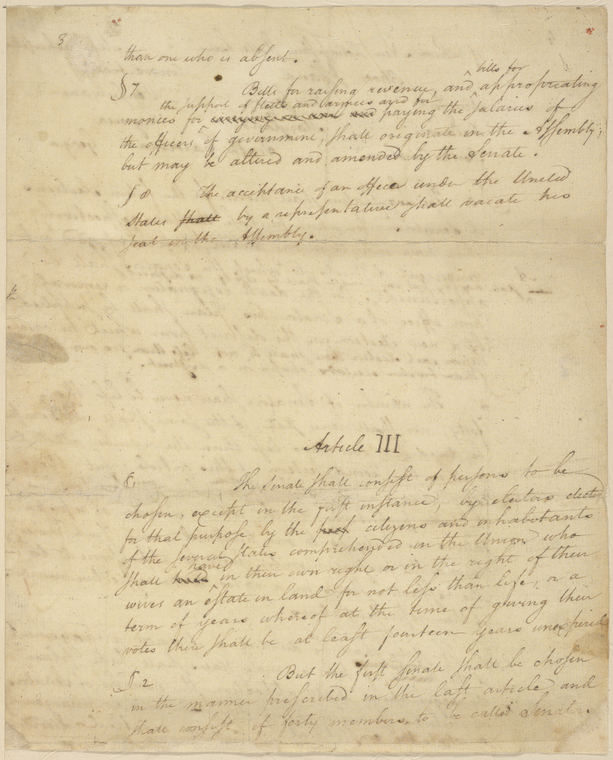 3
than one who is absent.
§ 7 Bills for raising revenue, and bills for appropriating
monies for the support of fleets and armies and for paying the salaries of
the officers of government, shall originate in the Assembly;
but may be altered and amended by the Senate.
§ 8 The acceptance of an office under the United
States shall by a representative shall vacate his
seat in the Assembly.
Article III
§ 1 The Senate shall consist of persons to be
chosen, except in the first instance, by electors elected
for that purpose by the citizens and inhabitants
of the several states comprehended in the Union who
shall have in their own right or in the right of their
wives an estate in land for not less than life, or a
term of years whereof at the time of giving their
votes there shall be at least fourteen years unexpired
§ 2 But the first Senate shall be chosen
in the manner prescribed in the last article and
shall consist of forty members to be called Senators